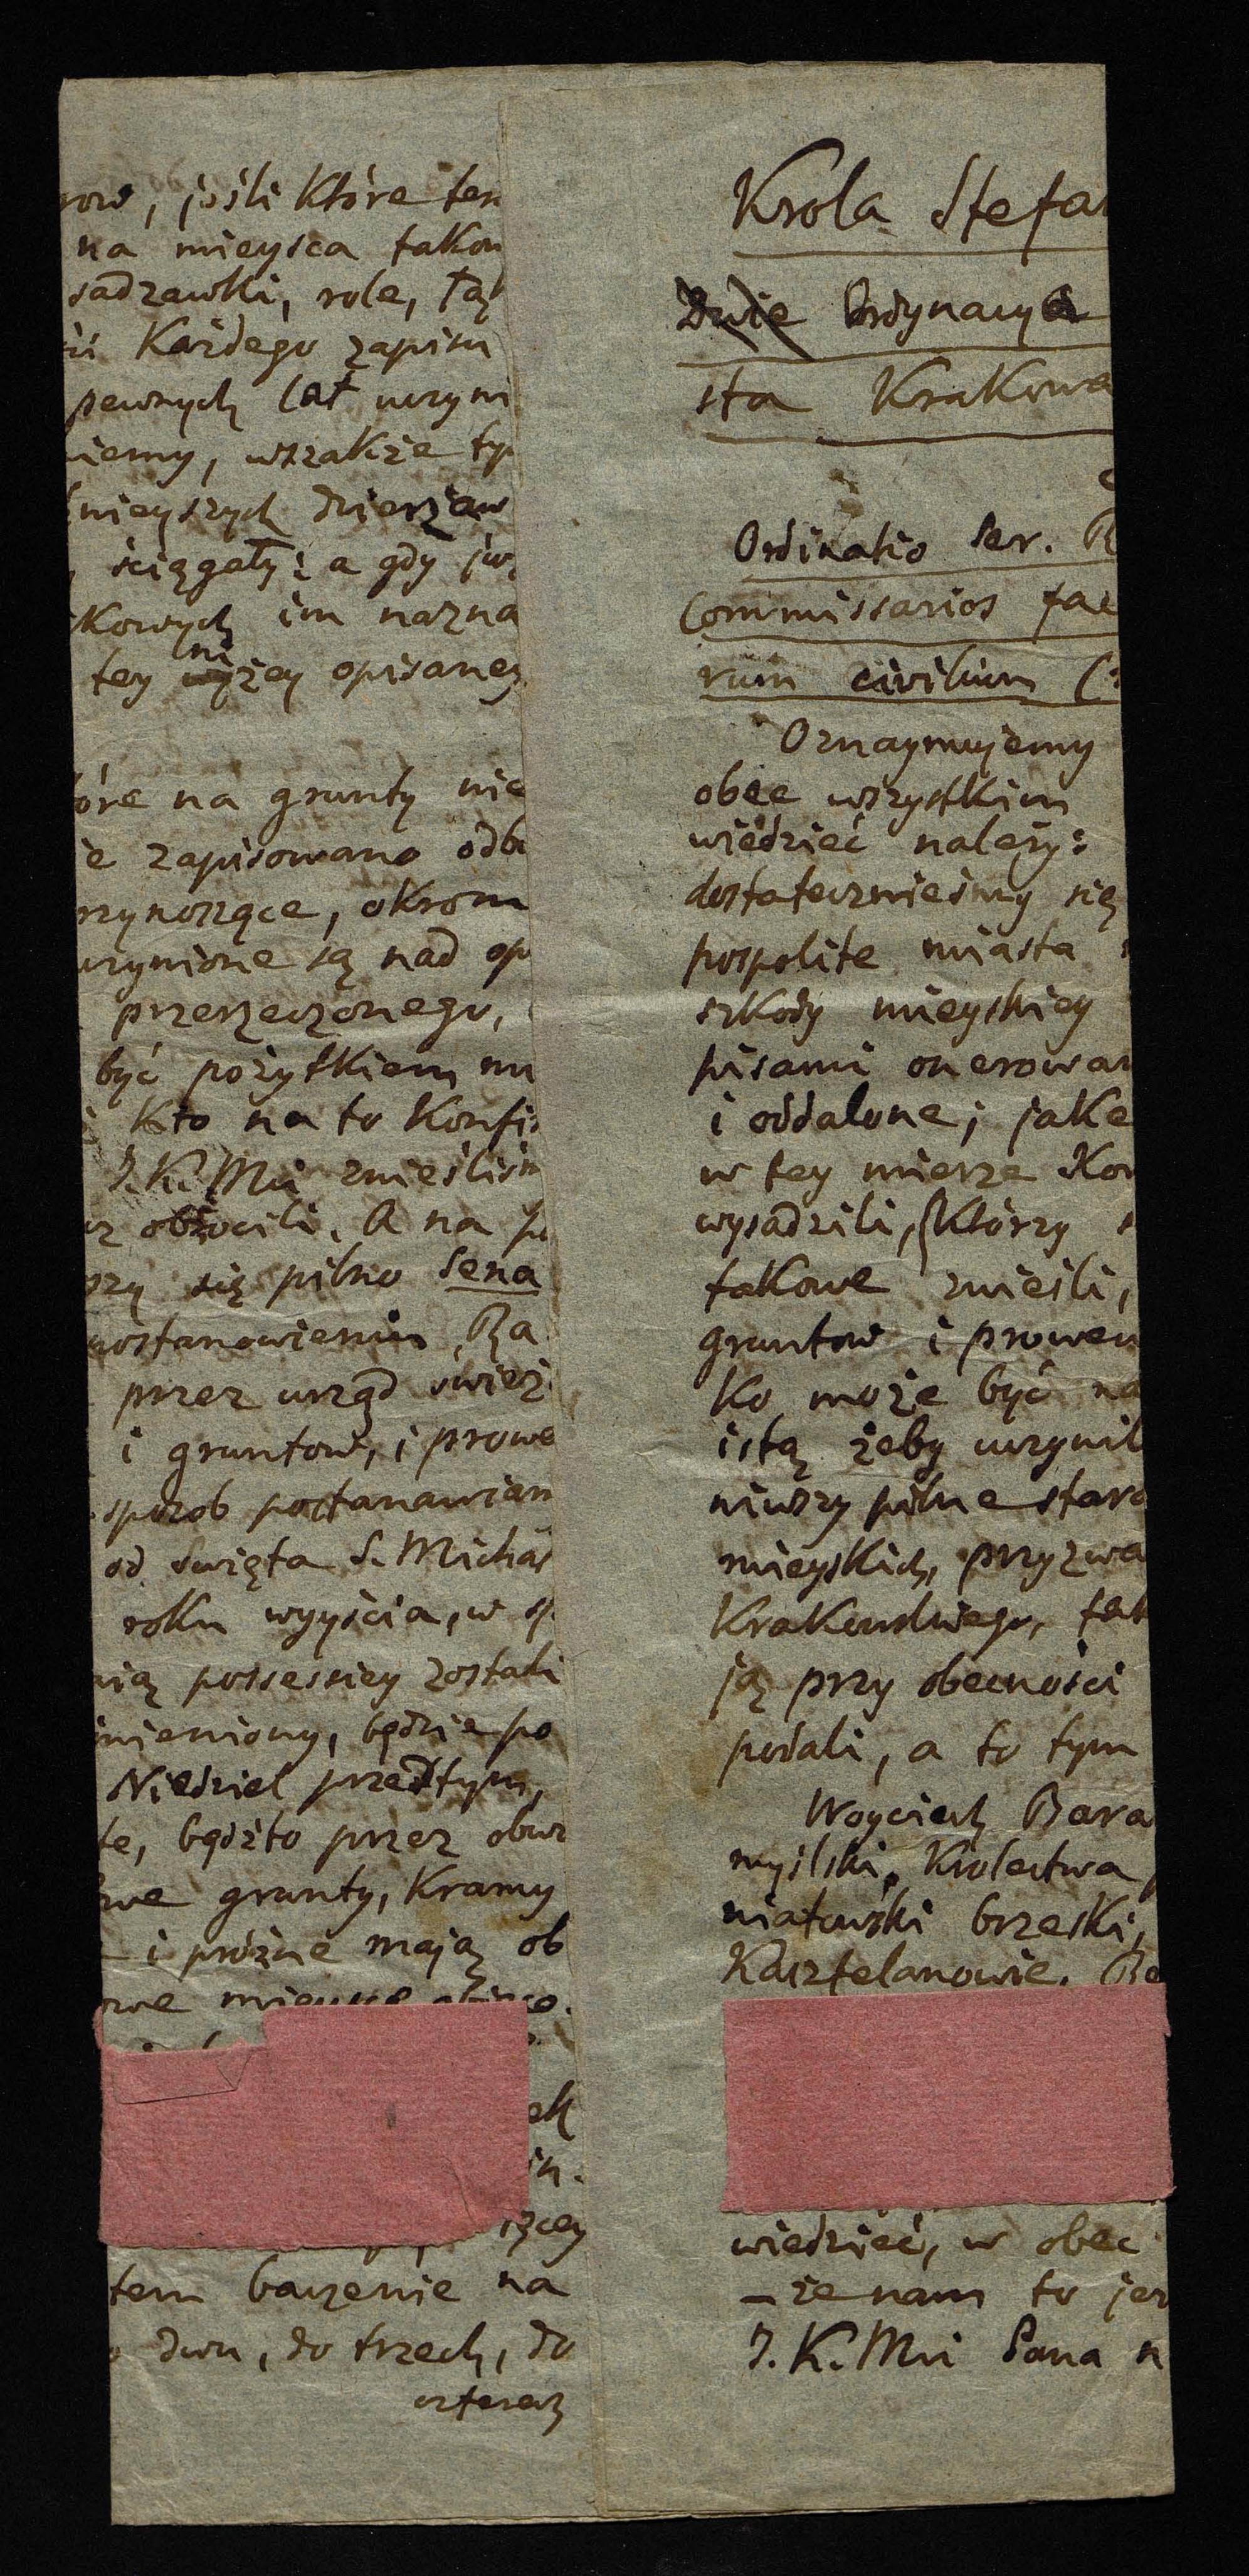 row, jeśli które ten
na mieysca takow
sadzawki, role, łą
Każdego zapisu
pewnych lat uczyni
iemy, wszakże ty
nieyszych dzierżaw
ściągały: a gdy już
kowych im nazna
tey niżey opisaney
óre na grunty nie
ie zapisowano odb
rzynoszące, okrom
uczynione są nad op
przerzeczonego,
być pożytkiem mu
Kto na to Konfi
J. K. Mci znieśliśm
obrócili. A na p
rzy się pilno Sena
postanowieniu Ra
przez urząd śwież
i gruntow, i prowe
sposob postanawiam
od święta S. Michał
roku wyyścia, w sp
nią possessiey zostali
mieniony, będzie po
Niedziel przedtym,
te, bądźto przez obw
we grunty, Kramy
– i próżne mają ob
owe
ek
in.
żcey
tem baczenie na
dwu, do trzech, do
czterech
Krola Stefan
Dwie Ordynacya
sta Krakowa
Ordinatio Ser. R
Commissarios fac
rum civilium (:
Oznaymujemy
obec wszystkim
wiedzieć należy:
dostateczniesmy się
pospolite miasta
szkody mieyskiey
pisami onerowan
i oddalone; jako
w tey mierze Kom
wysadzili, którzy
takowe znieśli,
gruntow i prowen
ko może być na
istą żeby uczynil
niwszy pilne stara
mieyskich, przyzwa
Krakowskiego, tak
ją przy obecności
podali, a to tym
Woyciech Bara
myślski, Krolestwa
niatowski brzeski,
Kasztelanowie. Be
wiedzieć, w obec
– że nam to jes
J. K. Mci Pana n